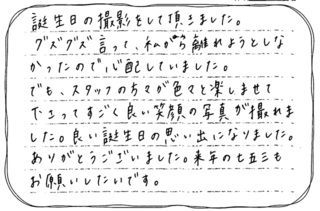 誕生日の撮影をして頂きました。
グズグズ言って、私から離れようとしな
かったので心配していました。
でも、スタッフの方々が色々と楽しませて
下さってすごく良い笑顔の写真が撮れま
した。良い誕生日の思い出になりました。
ありがとうございました。来年の七五三も
お願いしたいです。